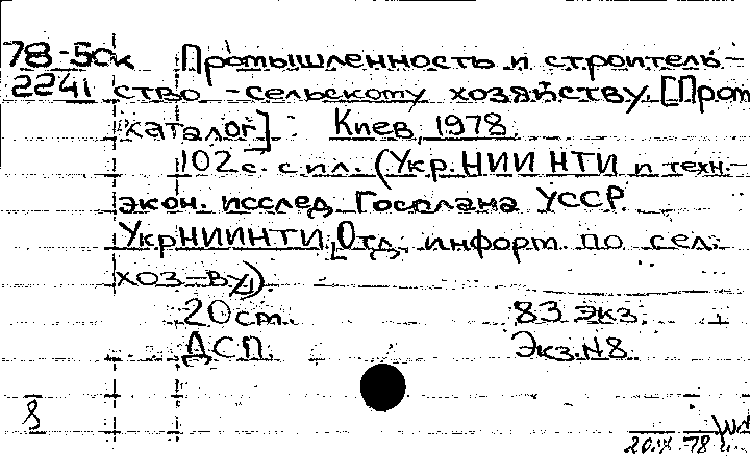 78-5ок Промышленность и строитель-
2241 ство - сельскому хозяйству. [Пром
каталог]. Киев, 1978.
102 с. с ил. (Укр.НИИ НТИ и техн.-
экон. исслед. Госплана УССР.
УкрНИИНТИ. Отд. информ. по сел.
хоз-ву).
20 см. 83 экз.
ДСП. Экз.N8.
8
78